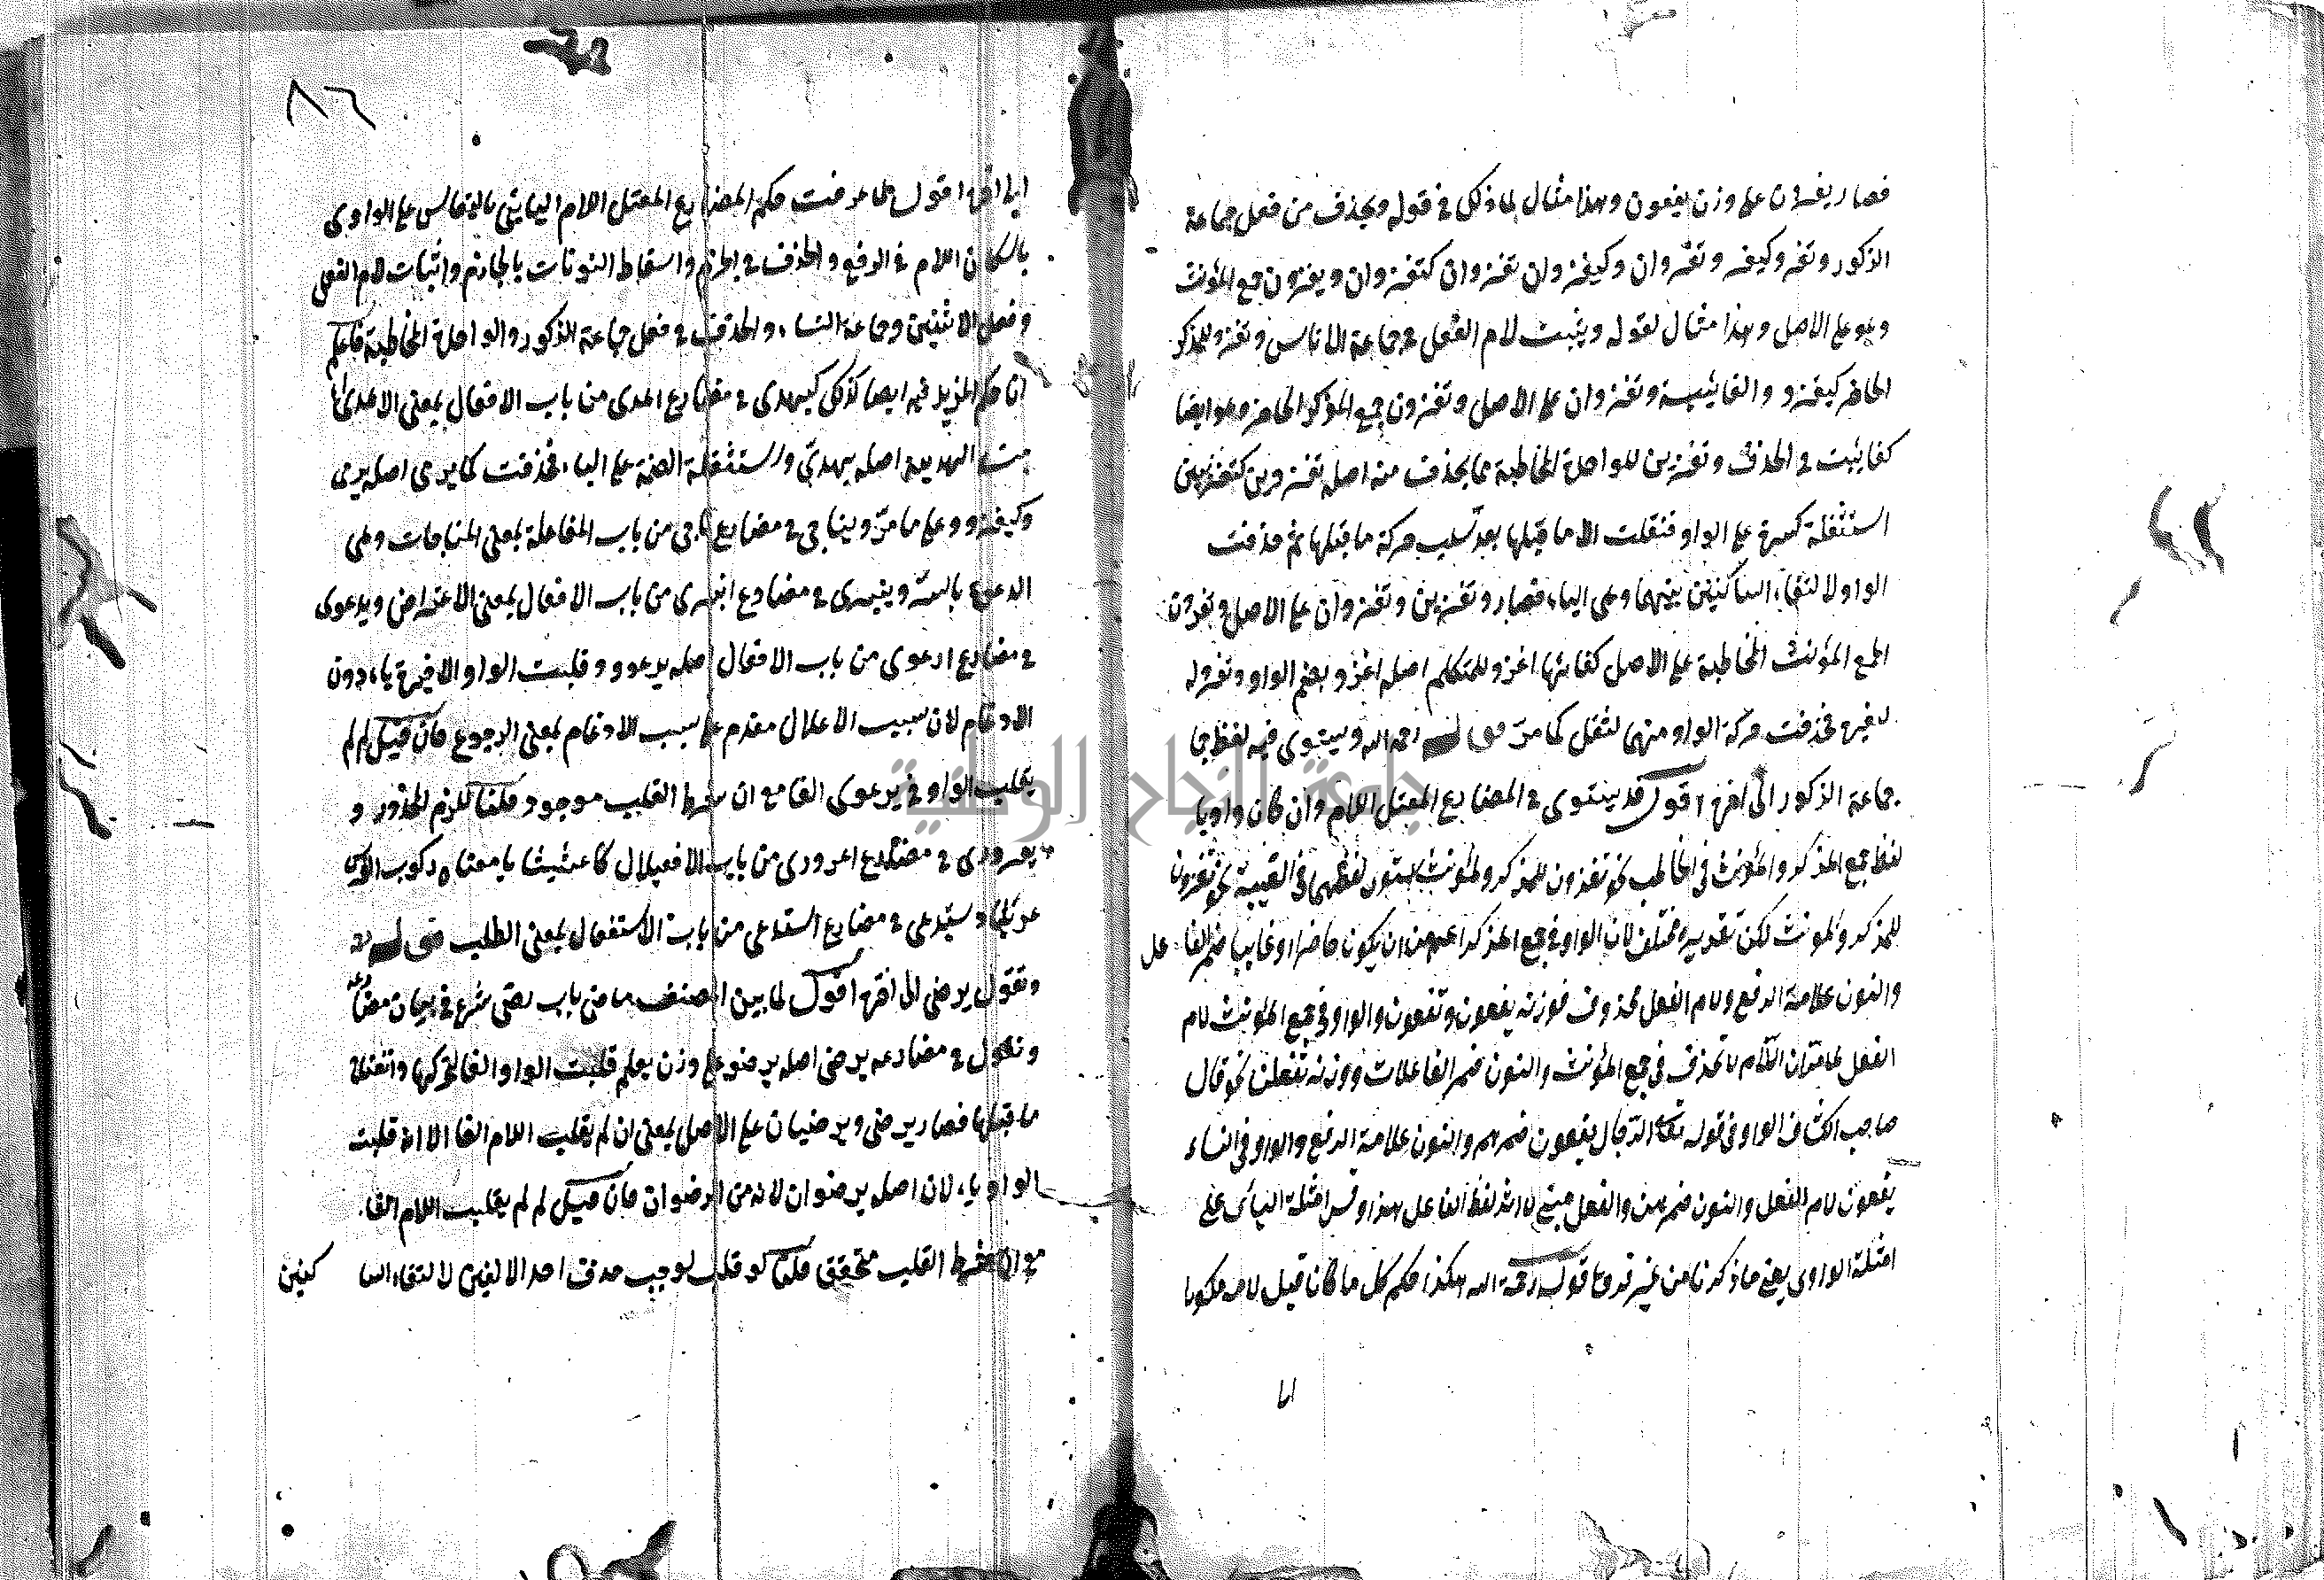 فصار يغزون على وزن يفعون وهذا مثال لما ذكر في قوله ويحذف من فعل جماعة
الذكور وتغزو كيغزو وتغزوان وكيغزوان تغزوان كتغزوان ويغزون جمع المؤنث
وهو على الاصل وهذا مثال لقوله ويثبت لام الفعل في جماعة الاناث وتغزو للمذكر
الحاضر كيغزو والغائبة وتغزوان على الاصل وتغزون جمع المذكر الحاضر وهو ايضا
كغائبه في الحذف وتغزين للواحدة المخاطبة مما يحذف منه اصله تغزوين كتنصرين
استثقلة كسرة على الواو فنقلت الا ما قبلها بعد سلب حركة ما قبلها ثم حذفت
الواو لالتقاء الساكنين بينهما وهى الياء فصار وتغزين وتغزوان على الاصل وتغزون
الجمع المؤنث المخاطبة على الاصل كغائبها اغزو للمتكلم اصله اغزو بضم الواو وتغزو له
لغيره فحذفت حركة الواو منهى لثقل كما مر رحمه الله ويستوى فيه لفظ جما
جماعة الذكور الى اخره اقول قد يستوى في المضارع المعتل اللام وان كان واويا
لفظ جمع المذكر والمؤنث في الخاطب نحو تغزون للمذكر ولمؤنث لستون لفظهما في الغيبة نحو تغزون
للمذكر والمونث لكن تقديره مختلف لان الواو في جمع المذكر اعم من ان يكون حاضرا او غايبا ضمير الفاعل
والنون علامة الرفع ولام الفعل محذوف فوزنه يفعون وتفعون والواو في جمع المونث لام
الفعل لما مر ان اللام لا تحذف في جمع المؤنث والنون ضمير الفاعلات ووزنه تفعلن نحو قال
صاحب الكشاف الواو في قوله تعالى الرجال يفعون ضميرهم والنون علامة الرفع والواو في النساء
يفعون لام الفعل والنون ضميرهن والفعل مبني لا اثر لفظ الفاعل هذا وقس امثلة اليائى على
امثلة الواوى يعنى ما ذكرنا من غير فرق قوله رحمة الله هكذا حكم كل ما كان قبل لامه مكسورا
اما
٨٦
الى اخره اقول لما عرفت حكم المضارع المعتل اللام اليايئى بالقياس على الواوى
باسكان اللام في الرفع والحذف في الجزم واسقاط النونات بالجازم واثبات لام الفعل
وفعل الاثنين وجماعة النساء والحذف في فعل جماعة الذكور والواحدة المخاطبة فاعلم
ان حكم المزيد فيه ايضا كذلك كيهدى في مضارع اهدى من باب الافعال بمعنى الاهداء
الهدية اصله يهدى واستثقلة الضمة على الياء فحذفت كما يرمى اصله يرمى
وكيغزو وعلى ما مر ويناجى في مضارع ناجى من باب المفاعلة بمعنى المناجات وهى
الدعوة بالسر وينبرى في مضارع انبرى من باب الافعال بمعنى الاعتراض ويرعوى
في مضارع ارعوى من باب الافعال اصله يرعوو وقلبت الواو الاخيرة ياء دون
الادغام لان سبب الاعلال مقدم على سبب الادغام بمعنى الرجوع فان قيل لم لم
يقلب الواو في يرعوى الفا مع ان شرط القلب موجود قلنا للزم المحذور و
يعرورى في مضارع اعرورى من باب الافعيلال كاعشيشا بامعناه ركوب الفرس
عريانا ويستدعى في مضارع استدعى من باب الاستفعال بمعنى الطلب
وتقول يرضى الى اخره اقول لما بين المصنف ماضى باب رضى شرع في بيان مضارعه
وتقول في مضارعه يرضى اصله يرضو على وزن يعلم قلبت الواو الفا لتحركها وانفتاح
ما قبلها فصار يرضى ويرضيان على الاصل بمعنى ان لم يقلب اللام الفا الا انه قلبت
الواو ياء لان اصله يرضوان لانه من الرضوان فان قيل لم لم يقلب اللام الفا
مع ان شرط القلب متحقق قلنا لو قلب لوجب حذف احد الالفين لالتقاء السا كنين
جامعة النجاح الوطنية